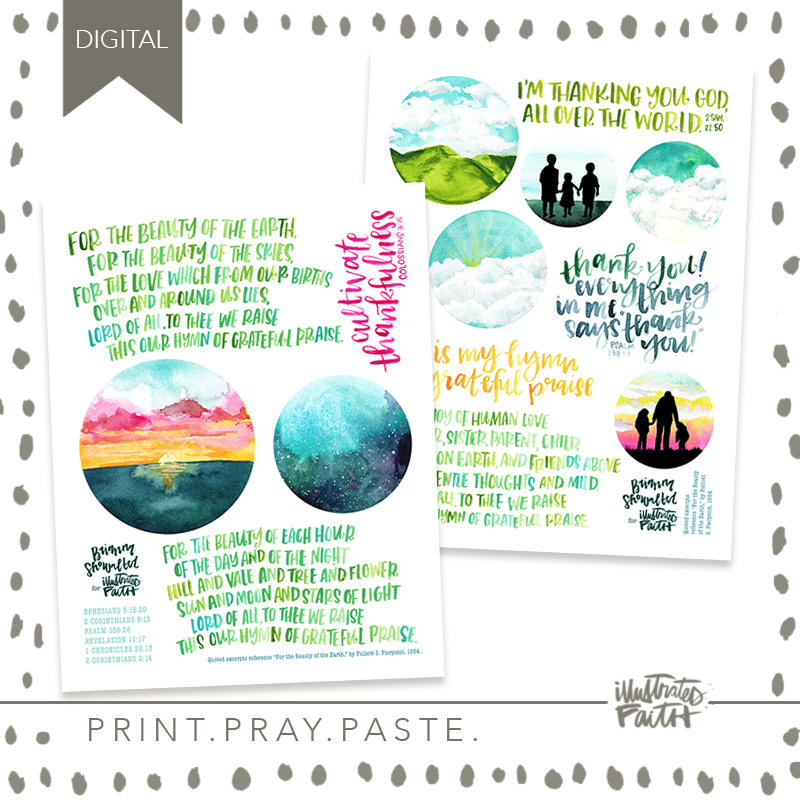 DIGITAL
FOR THE BEAUTY OF THE EARTH,
FOR THE BEAUTY OF THE SKIES,
FOR THE LOVE WHICH FROM OUR BIRTHS
OVER AND AROUND US LIES,
LORD OF ALL, TO THEE WE RAISE
THIS OUR HYMN OF GRATEFUL PRAISE.
cultivate
thankfulness
COLOSSIANS
for
illustrated
FAITH
EPHESIANS 5:18-20
2 CORINTHIANS 9:15
PSALM 136:26
REVELATION 11:17
1 CHRONICLES 29:13
2 CORINTHIANS 2:14
FOR THE BEAUTY OF EACH HOUR
OF THE DAY AND OF THE NIGHT
HILL AND VALE AND TREE AND FLOWER,
SUN AND MOON AND STARS OF LIGHT
LORD OF ALL, TO THEE WE RAISE
THIS OUR HYMN OF GRATEFUL PRAISE.
Quoted excerpts reference "For the Beauty of the Earth," by Folliott S. Pierpoint, 1864.
I'M THANKING YOU, GOD,
ALL OVER THE WORLD. 2 SAM.
22:50
thank you!
everything
in me
says "thank
you!"
PSALM
138:1
is my hymn
grateful praise
OY OF HUMAN LOVE
R, SISTER, PARENT, CHILD,
ON EARTH, AND FRIENDS ABOVE
ENTLE THOUGHTS AND MILD,
ALL, TO THEE WE RAISE
HYMN OF GRATEFUL PRAISE.
for
illustrated
FAITH
Quoted excerpts
reference "For the Beauty
of the Earth," by Folliott
S. Pierpoint, 1864.
illustrated
FAITH
PRINT.PRAY.PASTE.